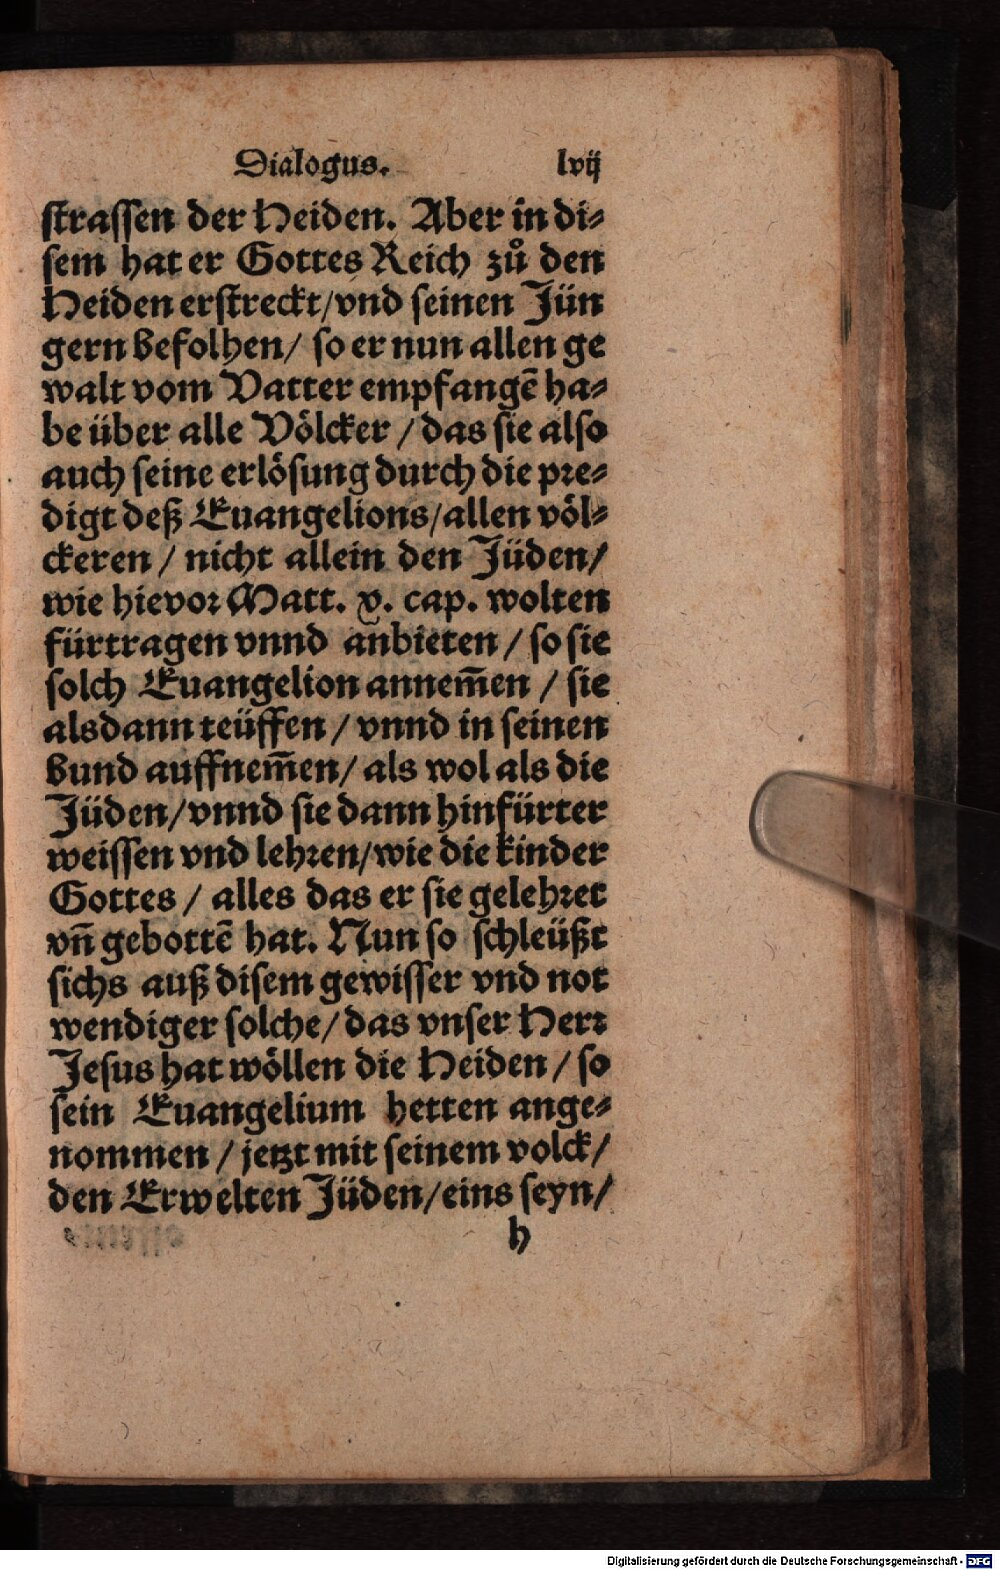 Dialogus. lvij
ſtraſſen der Heiden. Aber in di⸗
ſem hat er Gottes Reich zuͦ den
Heiden erſtreckt/vnd ſeinen Jün
gern befolhen/ ſo er nun allen ge
walt vom Vatter empfangē ha⸗
be über alle Völcker /das ſie alſo
auch ſeine erlöſung durch die pꝛe⸗
digt deß Euangelions/allen völ⸗
ckeren / nicht allein den Jüden/
wie hievoꝛ Matt. x. cap. wolten
fürtragen vnnd anbieten / ſo ſie
ſolch Euangelion annem̄en / ſie
alsdann teüffen / vnnd in ſeinen
bund auffnem̄en/ als wol als die
Jüden/vnnd ſie dann hinfürter
weiſſen vnd lehꝛen/wie die kinder
Gottes / alles das er ſie gelehꝛet
vn̄ gebottē hat. Nun ſo ſchleüßt
ſichs auß diſem gewiſſer vnd not
wendiger ſolche/ das vnſer Herꝛ
Jeſus hat wöllen die Heiden / ſo
ſein Euangelium hetten ange⸗
nommen / jetzt mit ſeinem volck/
den Erwelten Jüden/eins ſeyn/
h
Digitalisierung gefördert durch die Deutsche Forschungsgemeinschaft - DFG